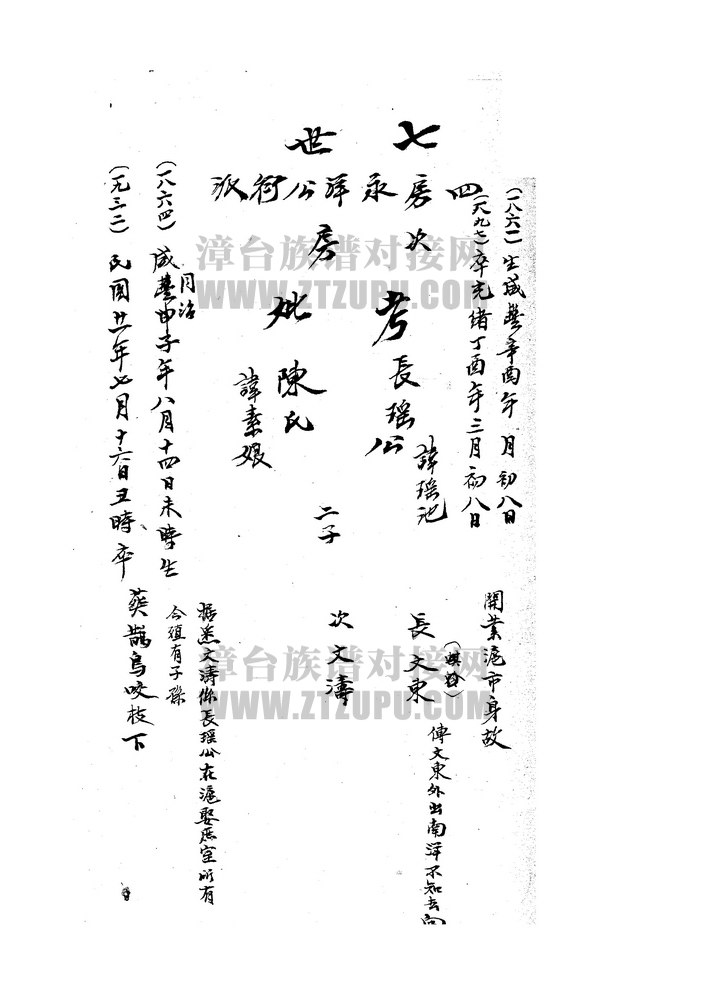 七世
四房永祥公衍派
次房
(一八六一)生咸豐辛酉年 月初八日
(一八九七)卒光緒丁酉年三月初八日
考長瑤公
諱瑤池
妣陳氏
諱素娘
同治
(一八六四)咸豐甲子年八月十四日未時生
(一九三二)民國廿一年七月十六日丑時卒
二子
開業滬市身故
長文東
傳文東外出南洋不知去向
次文濤
據悉文濤係長瑤公在滬娶底室所有
今殖有子孫
葬鵲鳥咬枝下
漳台族谱对接网
WWW.ZTZUPU.COM
漳台族谱对接网
WWW.ZTZUPU.COM